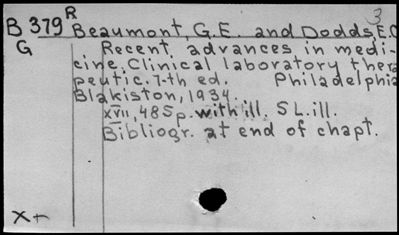 3
R
B 379 Beaumont, G.E. and Dodds, E.C
G Recent advances in medi-
cine. Clinical laboratory thera
peutic. 7-th ed. Philadelphia
Blakiston, 1934.
XVII, 485 p. with ill. 5 L. ill.
Bibliogr. at end of chapt.
X+